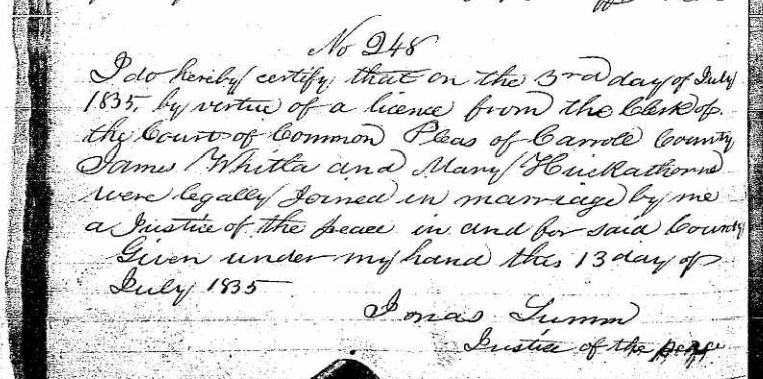 No 248
I do hereby certify that on the 3rd day of July
1835, by virtue of a licence from the Clerk of
the Court of Common Pleas of Carroll County
James Whitla and Mary Huckathorne
were legally Joined in marriage by me
a Justice of the peace in and for said County
Given under my hand this 13 day of
July 1835
Jonas Tumm
Justice of the peace